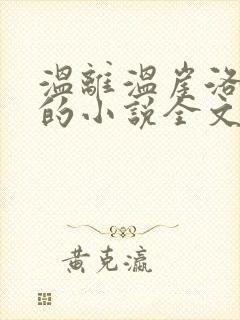 温離温崖洛
的小說全文
黄克瀛